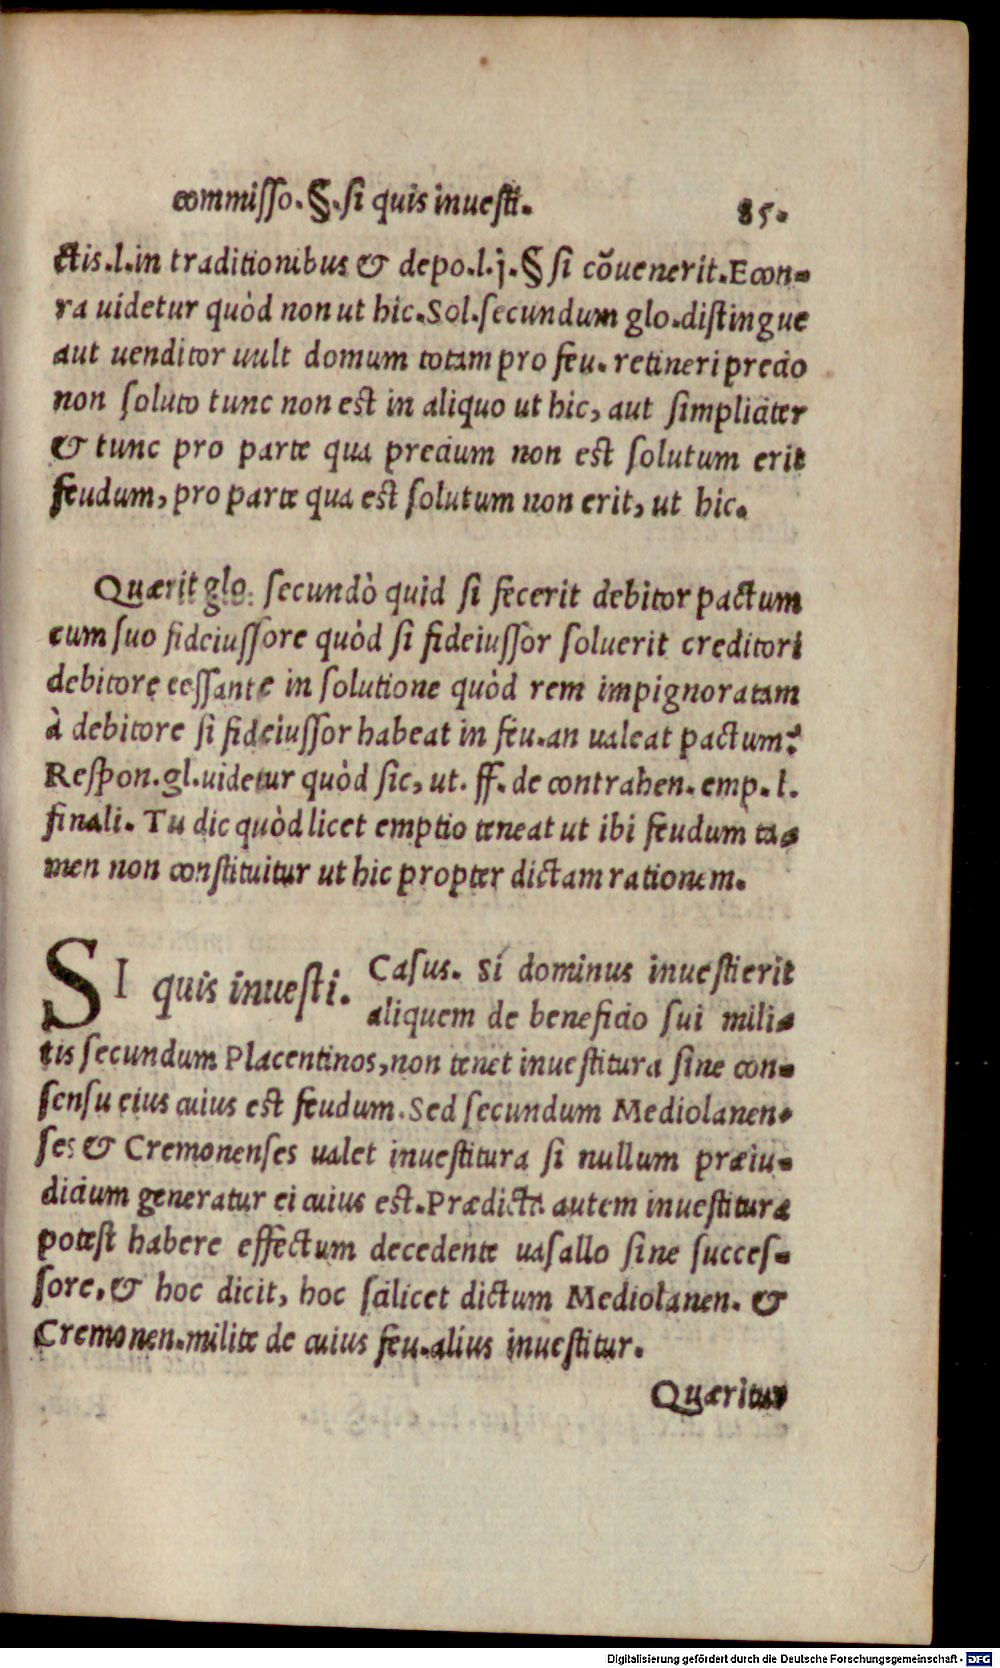 commisso.§.si quis inuesti. 85.
ctis.l.in traditionibus & depo.l.j.§ si cõuenerit.Econ-
ra uidetur quòd non ut hic.Sol.secundum glo.distingue
aut uenditor uult domum totam pro feu. retineri precio
non soluto tunc non est in aliquo ut hic, aut simpliciter
& tunc pro parte qua precium non est solutum erit
feudum, pro parte qua est solutum non erit, ut hic.
Quærit glo. secundò quid si fecerit debitor pactum
cum suo fideiussore quòd si fideiussor soluerit creditori
debitore cessante in solutione quòd rem impignoratam
à debitore si fideiussor habeat in feu.an ualeat pactum?
Respon.gl.uidetur quòd sic, ut. ff. de contrahen. emp. l.
finali. Tu dic quòd licet emptio teneat ut ibi feudum ta-
men non constituitur ut hic propter dictam rationem.
SI quis inuesti. Casus. Si dominus inuestierit
aliquem de beneficio sui mili-
tis secundum Placentinos, non tenet inuestitura sine con-
sensu eius cuius est feudum. Sed secundum Mediolanen-
ses & Cremonenses ualet inuestitura si nullum præiu-
dicium generatur ei cuius est. Prædicta autem inuestitura
potest habere effectum decedente uasallo sine succes-
sore, & hoc dicit, hoc scilicet dictum Mediolanen. &
Cremonen.milite de cuius feu.alius inuestitur.
Quæritur
Digitalisierung gefördert durch die Deutsche Forschungsgemeinschaft - DFG